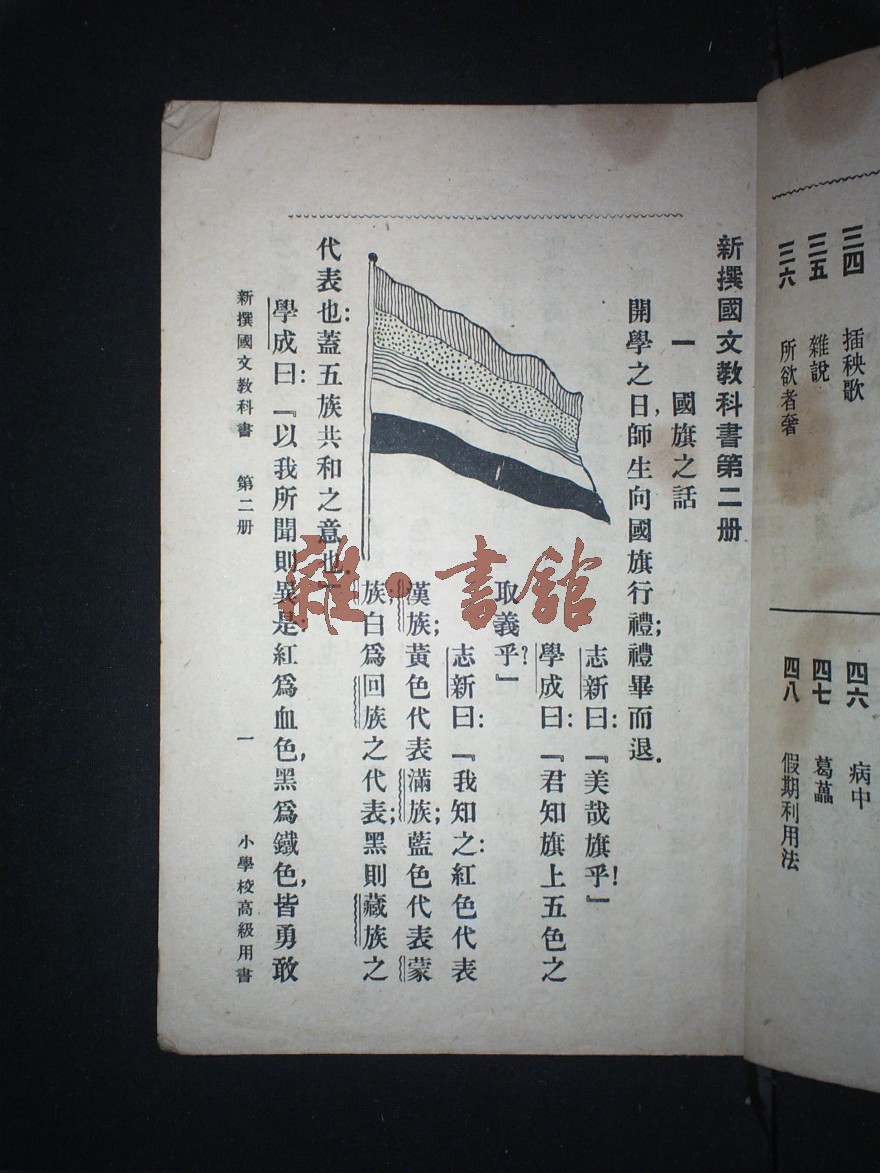 三四 插秧歌
三五 雜說
三六 所欲者奢
四六 病中
四七 葛藟
四八 假期利用法
新撰國文教科書第二册
一 國旗之話
開學之日,師生向國旗行禮;禮畢而退.
志新曰:『美哉旗乎!』
學成曰:『君知旗上五色之
取義乎?』
志新曰:『我知之:紅色代表
漢族;黃色代表滿族;藍色代表蒙
族;白爲回族之代表;黑則藏族之
代表也:蓋五族共和之意也.』
學成曰:『以我所聞則異是:紅爲血色,黑爲鐵色,皆勇敢
新撰國文教科書 第二册 一 小學校高級用書
雜·書館